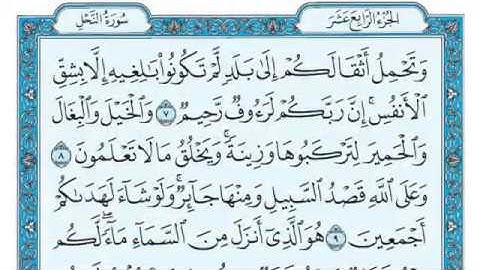 الجزء الرابع عشر
سورة النحل
وَتَحْمِلُ أَثْقَالَكُمْ إِلَىٰ بَلَدٍ لَّمْ تَكُونُوا۟ بَٰلِغِيهِ إِلَّا بِشِقِّ
ٱلْأَنفُسِ ۚ إِنَّ رَبَّكُمْ لَرَءُوفٌ رَّحِيمٌ ٧ وَٱلْخَيْلَ وَٱلْبِغَالَ
وَٱلْحَمِيرَ لِتَرْكَبُوهَا وَزِينَةً ۚ وَيَخْلُقُ مَا لَا تَعْلَمُونَ ٨
وَعَلَى ٱللَّهِ قَصْدُ ٱلسَّبِيلِ وَمِنْهَا جَآئِرٌ ۚ وَلَوْ شَآءَ لَهَدَىٰكُمْ
أَجْمَعِينَ ٩ هُوَ ٱلَّذِىٓ أَنزَلَ مِنَ ٱلسَّمَآءِ مَآءً ۖ لَّكُم